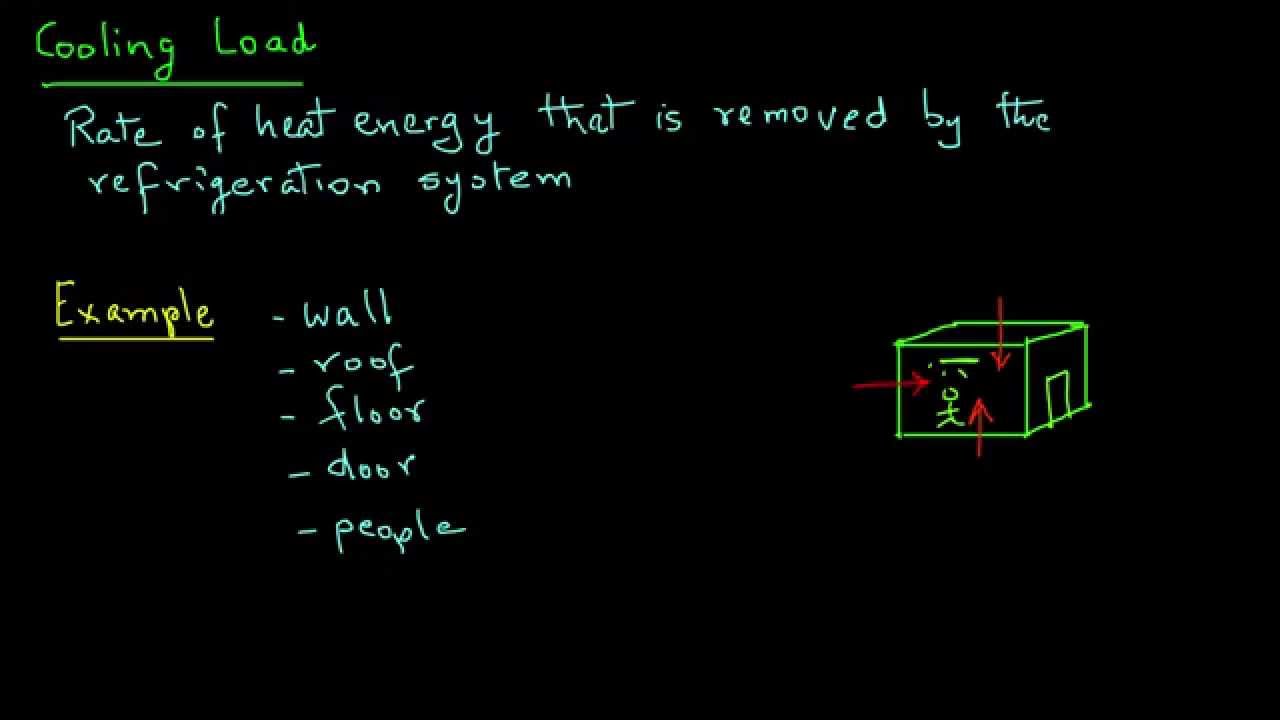 Cooling Load
Rate of heat energy that is removed by the
refrigeration system
Example - wall
- roof
- floor
- door
- people